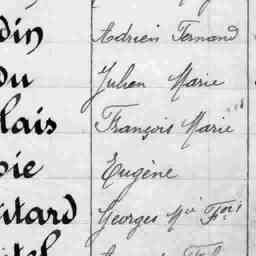 din Adrien Fernand
Du Julien Marie
lais François Marie
pie Eugène
utard Georges Mie Fois